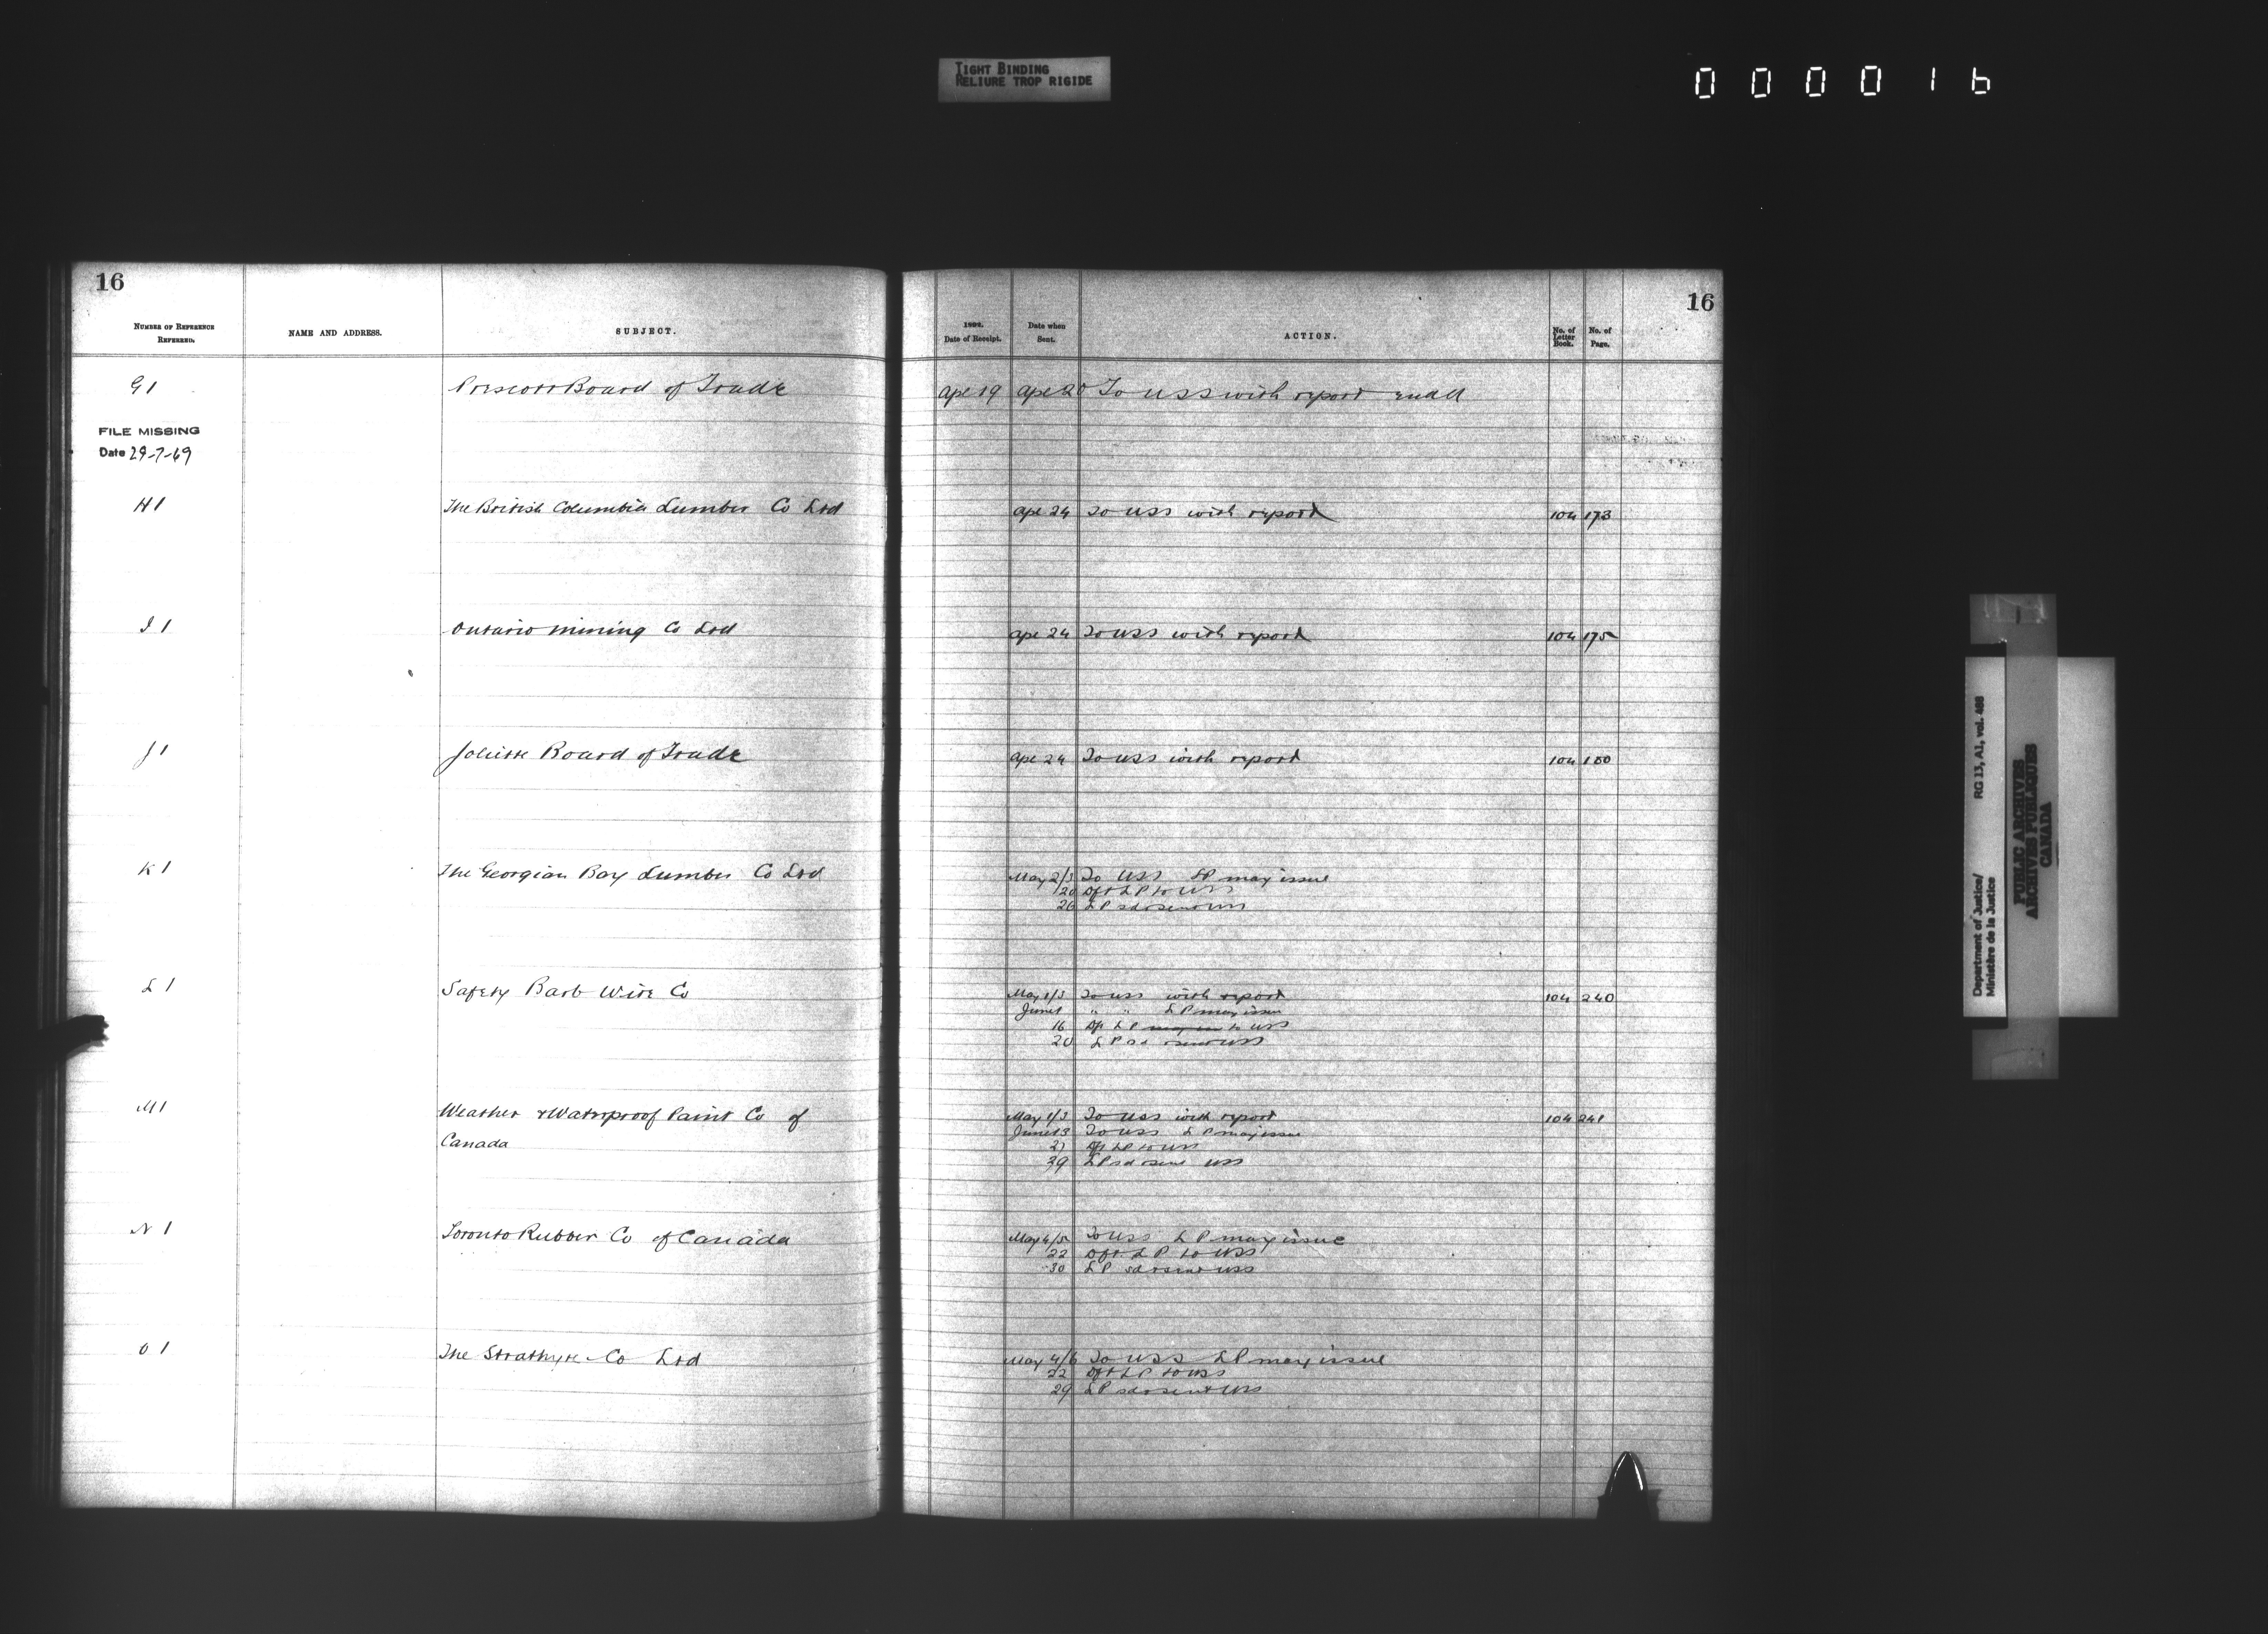 TIGHT BINDING
RELIURE TROP RIGIDE
000016
16
NUMBER OF REFERENCE REFERRED.
NAME AND ADDRESS.
SUBJECT.
G 1
Prescott Board of Trade
FILE MISSING
Date 29-7-69
H 1
The British Columbia Lumber Co Ltd
I 1
Ontario Mining Co Ltd
J 1
Joliette Board of Trade
K 1
The Georgian Bay Lumber Co Ltd
L 1
Safety Barb Wire Co
M 1
Weather & Waterproof Paint Co of
Canada
N 1
Toronto Rubber Co of Canada
O 1
The Co Ltd
16
Date of Receipt.
Date when Sent.
ACTION.
No. of Letter Book.
No. of Page.
Apl 19 Apl 20 To USS with report
Apl 24 To USS with report 104 173
Apl 24 To USS with report 104 175
Apl 24 To USS with report 104 180
May 2/3 To USS LP may issue
20 Dft LP to USS
26 LP sd & sent USS
May 1/3 To USS with report 104 240
June 1 " " LP may issue
16 Dft LP to USS
20 LP sd & sent USS
May 1/3 To USS with report 104 241
June 13 To USS LP may issue
21 Dft LP to USS
29 LP sd & sent USS
May 4/5 To USS LP may issue
22 Dft LP to USS
30 LP sd & sent USS
May 4/6 To USS LP may issue
22 Dft LP to USS
29 LP sd & sent USS
Department of Justice/ RG 13, A1, vol. 488
Ministère de la Justice
PUBLIC ARCHIVES
ARCHIVES PUBLIQUES
CANADA